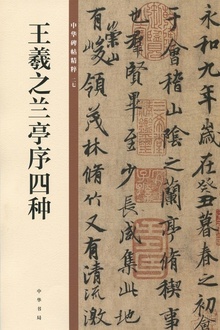 中华碑帖精粹
王羲之兰亭序四种
中华书局
永和九年歲在癸丑暮春之初
于會稽山陰之蘭亭脩稧事
也群賢畢至少長咸集此
崇山
有峻領茂林脩竹又有清流激